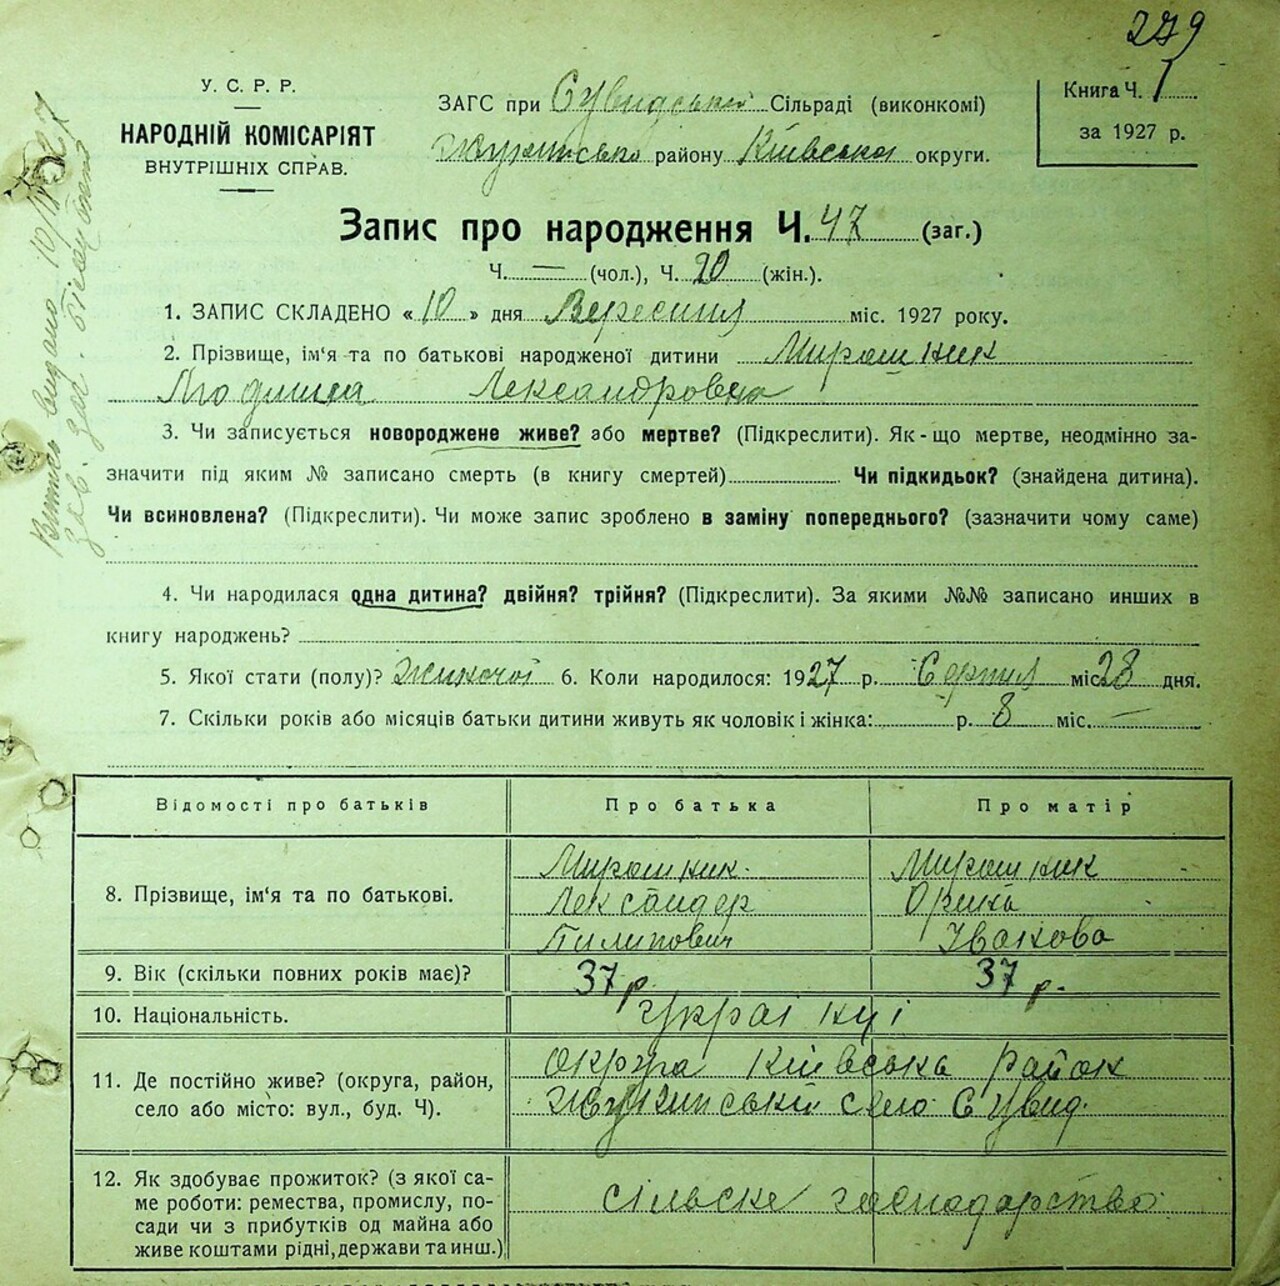 279
У. С. Р. Р.
НАРОДНІЙ КОМІСАРІЯТ
ВНУТРІШНІХ СПРАВ.
ЗАГС при Сувидській Сільраді (виконкомі)
району Київської округи.
Книга Ч. 1
за 1927 р.
Запис про народження Ч. 47 (заг.)
Ч. — (чол.), Ч. 20 (жін.).
1. ЗАПИС СКЛАДЕНО «10» дня Вересння міс. 1927 року.
2. Прізвище, ім'я та по батькові народженої дитини Мирошник
Людмила Лександровна
3. Чи записується новороджене живе? або мертве? (Підкреслити). Як-що мертве, неодмінно за-
значити під яким № записано смерть (в книгу смертей) Чи підкидьок? (знайдена дитина).
Чи всиновлена? (Підкреслити). Чи може запис зроблено в заміну попереднього? (зазначити чому саме)
4. Чи народилася одна дитина? двійня? трійня? (Підкреслити). За якими №№ записано инших в
книгу народжень?
5. Якої стати (полу)? жиночої 6. Коли народилося: 1927 р. Серпня міс. 28 дня.
7. Скільки років або місяців батьки дитини живуть як чоловік і жінка: р. 8 міс. —
Відомості про батьків Про батька Про матір
8. Прізвище, ім'я та по батькові.
Мирошник Мирошник
Лександер Орина
Пилипович Іванова
9. Вік (скільки повних років має)? 37 р. 37 р.
10. Національність. Украінці
11. Де постійно живе? (округа, район,
село або місто: вул., буд. Ч).
округа Київська район
село Сувид
12. Як здобуває прожиток? (з якої са-
ме роботи: ремества, промислу, по-
сади чи з прибутків од майна або
живе коштами рідні, держави та инш.)
сільске господарство